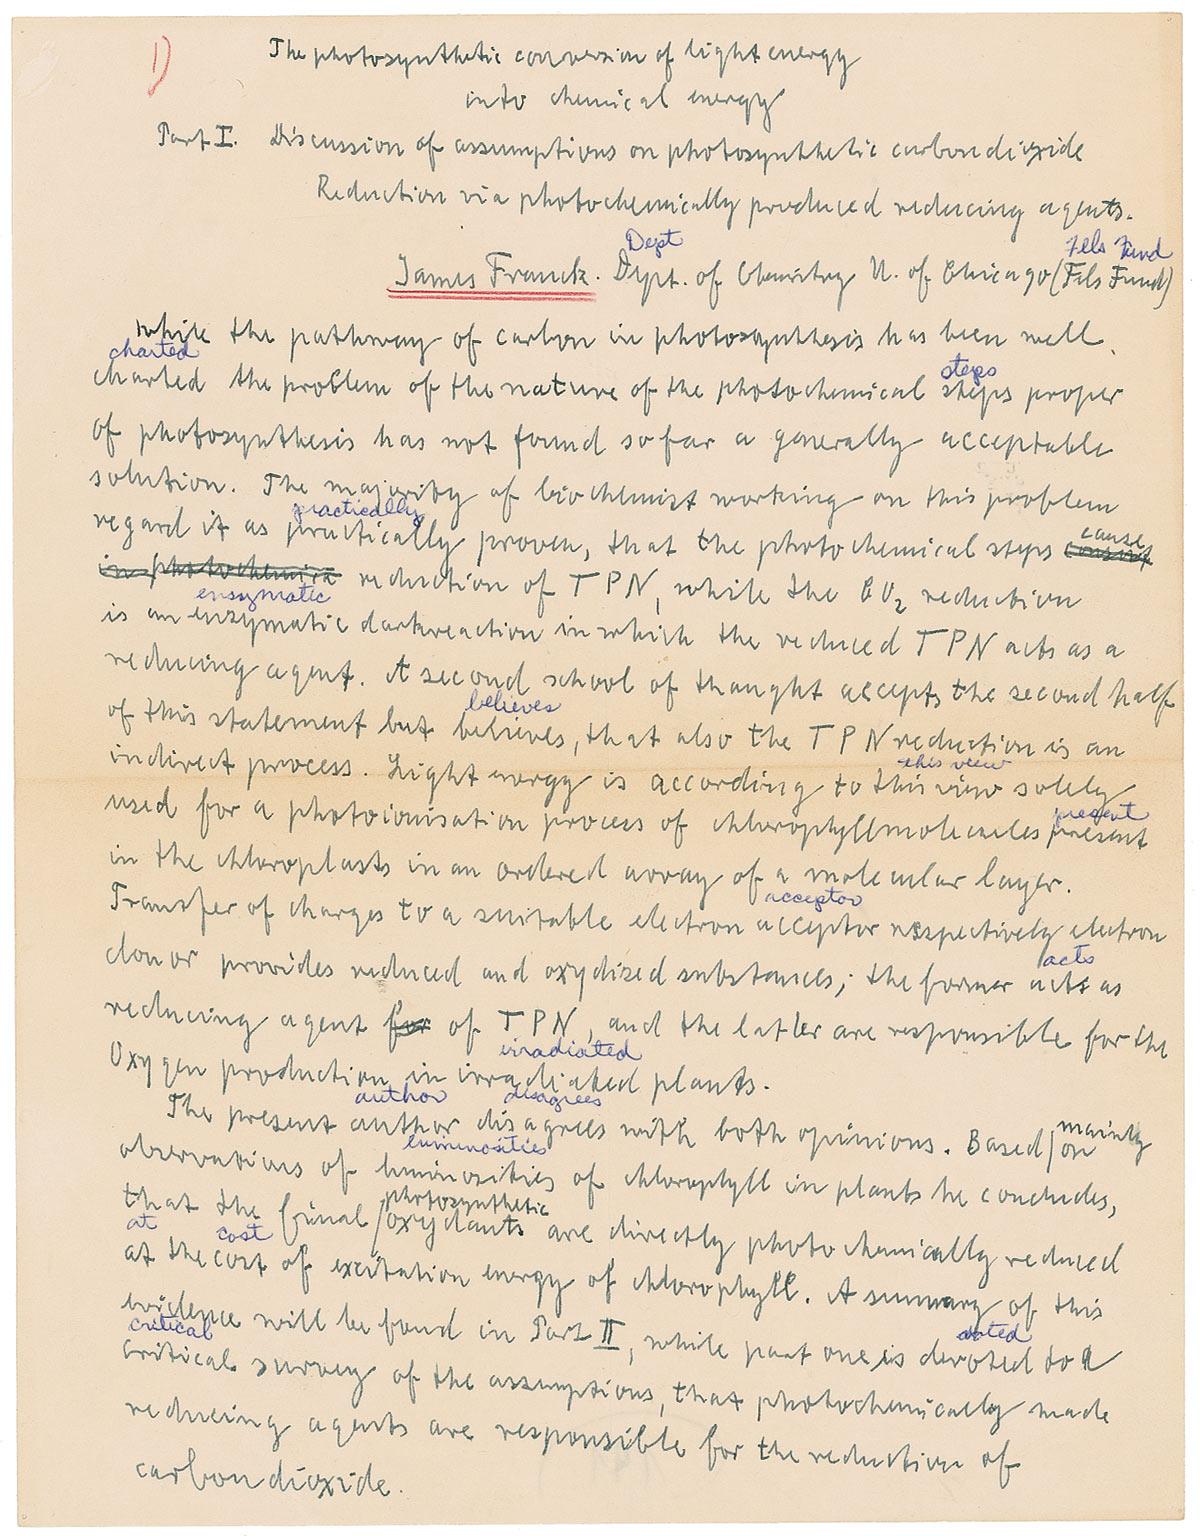 1)
The photosynthetic conversion of light energy
into chemical energy
Part I. Discussion of assumptions on photosynthetic carbondioxide
Reduction via photochemically produced reducing agents.
Dept Fels Fund
James Franck. Dept. of Chemistry U. of Chicago (Fels Fund)
While the pathway of carbon in photosynthesis has been well
charted steps
charted the problem of the nature of the photochemical steps proper
of photosynthesis has not found so far a generally acceptable
solution. The majority of biochemist working on this problem
practically
regard it as practically proven, that the photochemical steps consist cause
in photochemica reduction of TPN, while the CO2 reduction
enzymatic
is an enzymatic darkreaction in which the reduced TPN acts as a
reducing agent. A second school of thought accepts the second half
believes
of this statement but believes, that also the TPN reduction is an
this view
indirect process. Light energy is according to this view solely
present
used for a photoionisation process of chlorophyllmolecules present
in the chloroplasts in an ordered array of a molecular layer.
acceptor
Transfer of charges to a suitable electron acceptor respectively electron
acts
donor provides reduced and oxydized substances; the former acts as
reducing agent for of TPN, and the latter are responsible for the
irradiated
Oxygen production in irradiated plants.
author disagrees
The present author disagrees with both opinions. Based mainly on
luminosities
observations of luminosities of chlorophyll in plants he concludes,
photosynthetic
that the final oxydants are directly photochemically reduced
at cost
at the cost of excitation energy of chlorophyll. A summary of this
evidence will be found in Part II, while part one is devoted to a
critical voted
critical survey of the assumptions, that photochemically made
reducing agents are responsible for the reduction of
carbondioxide.